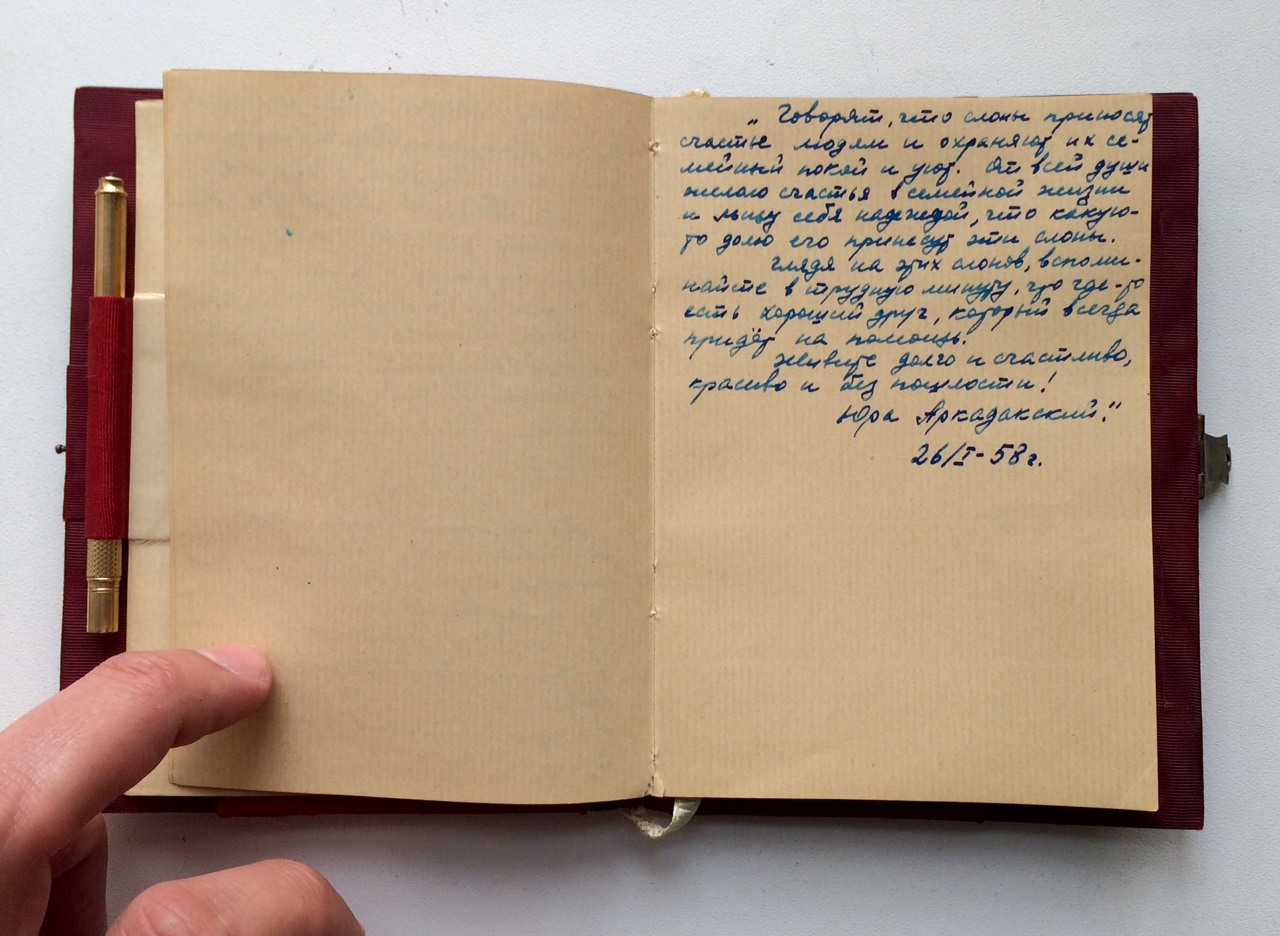 „ Говорят, что слоны приносят
счастье людям и охраняют их се-
мейный покой и уют. От всей души
желаю счастья в семейной жизни
и льщу себя надеждой, что какую-
то долю его принесут эти слоны.
Глядя на этих слонов, вспоми-
найте в трудную минуту, что где-то
есть хороший друг, который всегда
придёт на помощь.
Живите долго и счастливо,
красиво и без пошлости!
Юра Аркадакский."
26/I - 58 г.